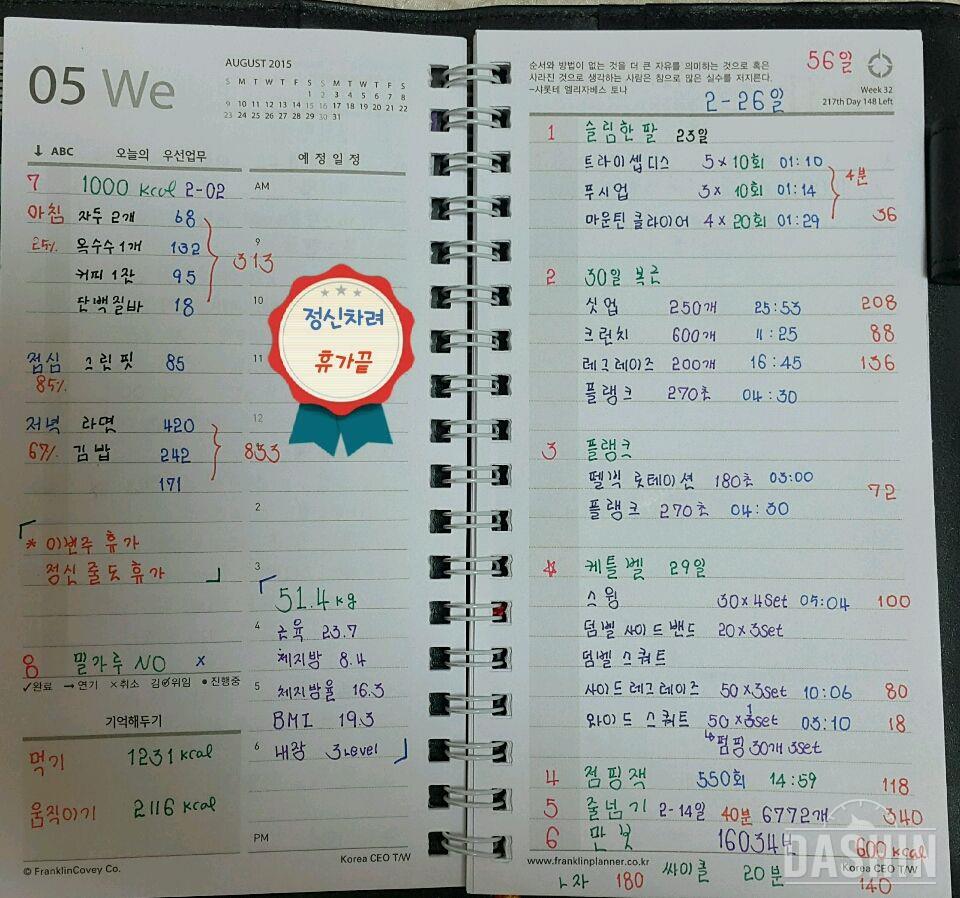 05 We
AUGUST 2015
S M T W T F S S M T W T F S
1 2 3 4 5 6 7 8
9 10 11 12 13 14 15 16 17 18 19 20 21 22
23 24 25 26 27 28 29 30 31
↓ ABC 오늘의 우선업무
예 정 일 정
7 1000 kcal 2-02
아침 자두 2개 68
25% 옥수수 1개 132
커피 1잔 95
단백질바 18
313
점심 그린 핏 85
85%
저녁 라면 420
67% 김밥 242
171
833
* 이번주 휴가
정신 줄도 휴가
8 밀가루 NO x
✓완료 →연기 ×취소 김∅위임 •진행중
기억해두기
먹기 1231 kcal
움직이기 2116 kcal
© FranklinCovey Co.
AM
9
10
11
12
2
3
4
5
6
PM
정신차려
휴가끝
51.4 kg
근육 23.7
체지방 8.4
체지방율 16.3
BMI 19.3
내장 3Level
Korea CEO T/W
순서와 방법이 없는 것을 더 큰 자유를 의미하는 것으로 혹은
사라진 것으로 생각하는 사람은 참으로 많은 실수를 저지른다.
-샤롯테 엘리자베스 토나
56일
Week 32
217th Day 148 Left
2-26일
1 슬림한 팔 23일
트라이셉디스 5 x 10회 01:10
푸시업 3 x 10회 01:14
마운틴 클라이머 4 x 20회 01:29
4분
36
2 30일 복근
싯업 250개 25:53 208
크런치 600개 11:25 88
레그레이즈 200개 16:45 136
플랭크 270초 04:30
3 플랭크
펠빅 로테이션 180초 03:00
플랭크 270초 04:30
72
케틀벨 29일
스윙 30 x 4Set 05:04 100
덤벨 사이드밴드 20 x 3set
덤벨 스쿼트
사이드레그레이즈 50 x 3set 10:06 80
와이드 스쿼트 50 x 3set 03:10 18
↳점핑 30개 3set
4 점핑잭 550회 14:59 118
5 줄넘기 2-14일 40분 6772개 340
6 만보 160344 600 kcal
www.franklinplanner.co.kr
Korea CEO T/W
180 싸이클 20분 140
DASHIN